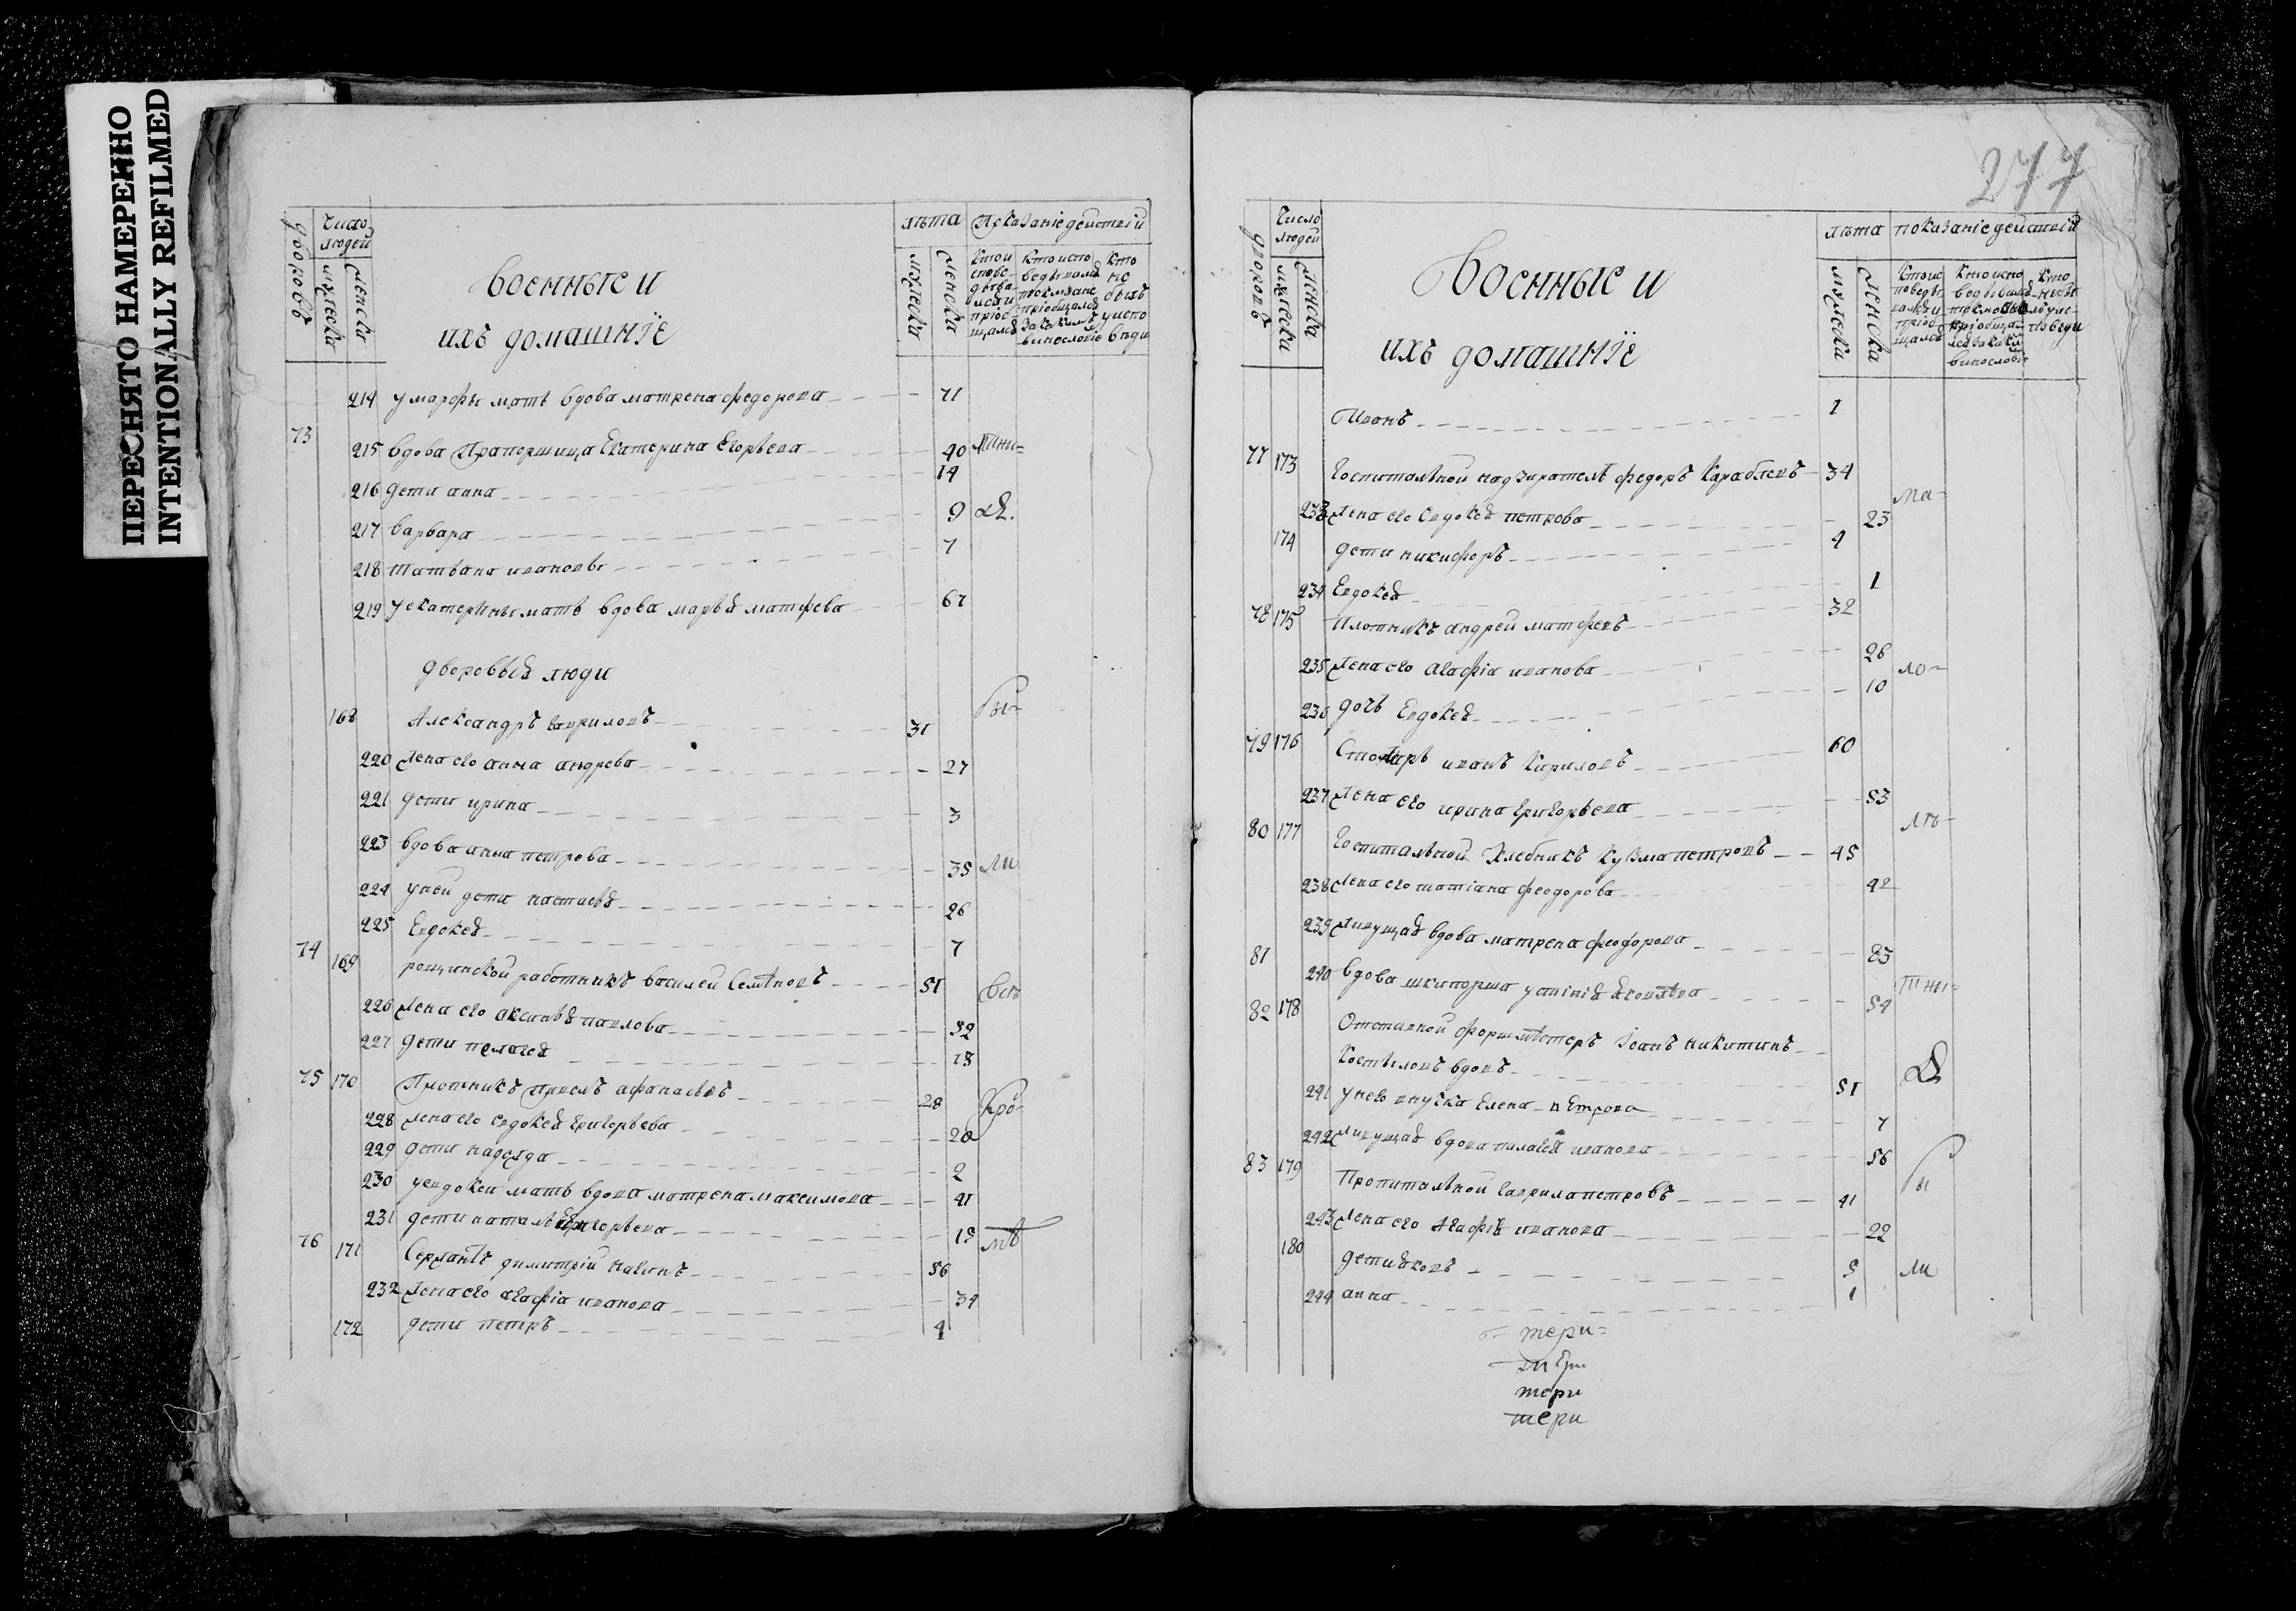 ПЕРЕСНЯТО НАМЕРЕННО
INTENTIONALLY REFILMED
дворовъ
Число людей
мужеска
женска
военныѥ и
ихъ домашнїе
лѣта
мужеска
женска
Показанїе действїй
214 у марфы мать вдова матрена федорова 71
73
215 вдова Прапорщица Екатерина Егорьева 40
216 дети анна 14
217 варвара 9
218 татьяна ивановы 7
219 у екатерины мать вдова марья матфева 67
дворовыя люди
168 Александръ гавриловъ 31
220 жена его анна андрева 27
221 дети ирина 3
223 вдова анна петрова 35 ли
224 у ней дети настасья 26
225 Евдокея 7
74 169 рощинской работникъ василей Семѣновъ 51
226 жена его аксинья павлова 52
227 дети пелагея 13
75 170 Плотникъ Павелъ афанасьевъ 28 Кро
228 жена его евдокея григорьева 20
229 дети надежда 2
230 у евдокеи мать вдова матрена максимова 41
231 дети наталья григорьева 15
76 171 Сержантъ димитрїй 56
232 жена его агафїа иванова 34
172 дети петръ 4
277
дворовъ
Число людей
мужеска
женска
Военныѥ и
ихъ домашнїе
лѣта
мужеска
женска
показанїе действїй
Иванъ 1
77 173 Госпитальной надзиратель федоръ Караблевъ 34
233 жена его евдокея петрова 23 ма-
174 дети никифоръ 4
234 Евдокея 1
78 175 Плотникъ андрей матфевъ 32
235 жена его агафїа иванова 26 ло-
236 дочь Евдокея 10
79 176 Столяръ иванъ Кириловъ 60
237 жена его ирина григорьева 53
80 177 Госпитальной хлебникъ кузма петровъ 45
238 жена его татїана феодорова 42
239 живущая вдова матрена феодорова 83
81
240 вдова шкиперша яковлева 54
82 178 Отставной форшмѣстеръ Iоанъ никитинъ
Костылевъ вдовъ 51
241 у него внучка Елена петрова 7
242 живущая вдова палагея иванова 56
83 179 Пропитальной гаврила петровъ 41
243 жена его Агафья иванова 22
180 дети яковъ 5 ли
244 анна 1
тери
тери
тери